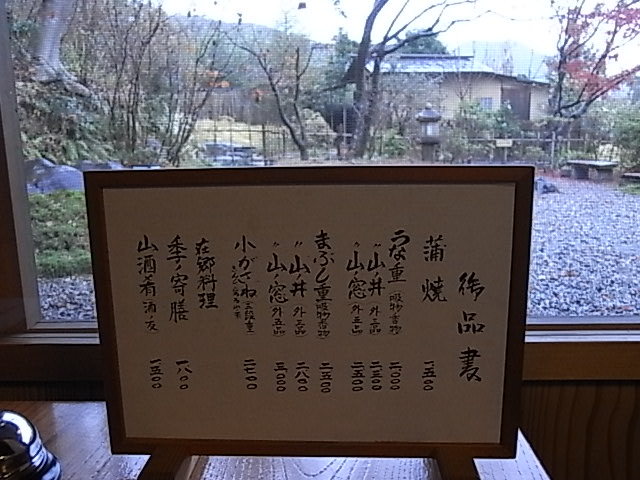 御品書
蒲焼 一五〇〇
うな重 吸物香物 二〇〇〇
〃山ノ井 外三品 二三〇〇
〃山ノ窓 外五品 二五〇〇
まぶし重 吸物香物 二五〇〇
〃山ノ井 外三品 二八〇〇
〃山ノ窓 外五品 三〇〇〇
小がさね 三段重 二七〇〇
在郷料理
季ノ寄膳 一八〇〇
山酒肴 酒ノ友 一五〇〇